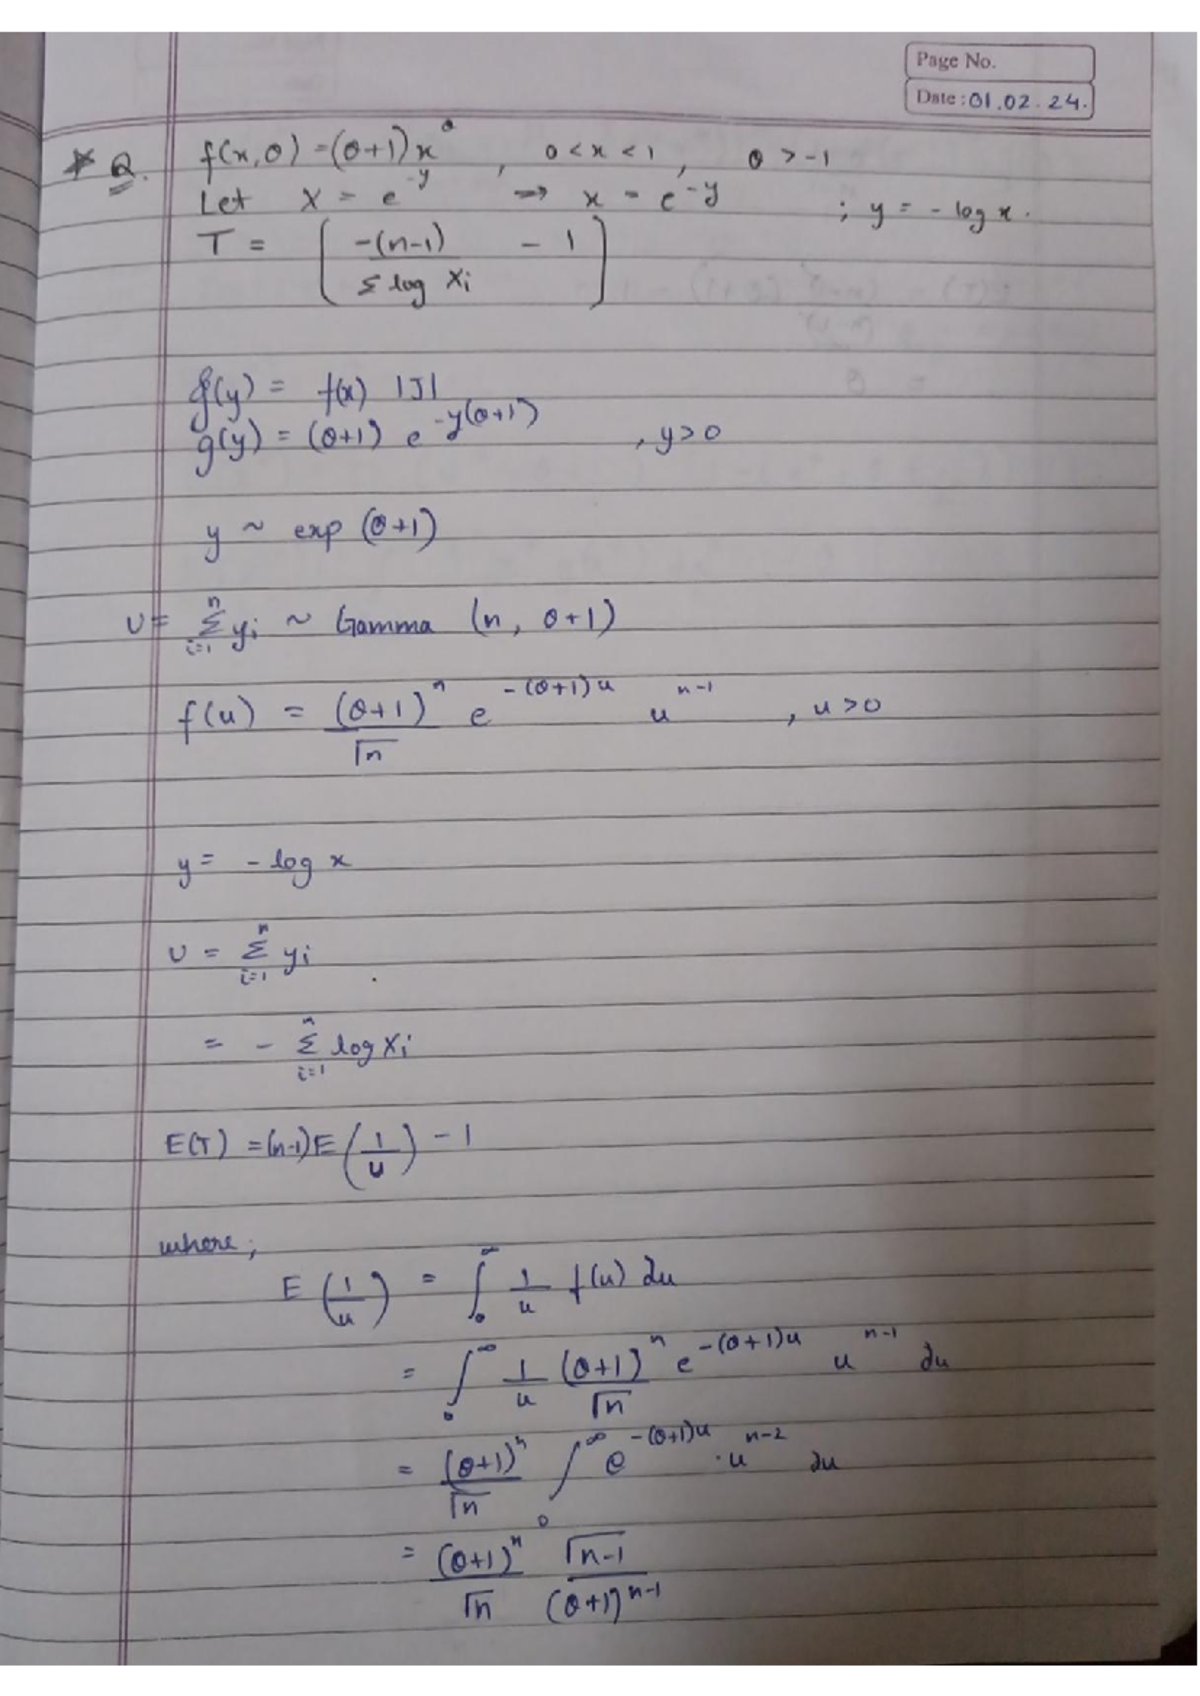 Page No.
Date : 01.02.24.
* Q. f(x,θ) = (θ+1)x^θ , 0 < x < 1 , θ > -1
Let X = e^{-y} ⇒ x = e^{-y} ; y = - log x .
T = [ -(n-1) / Σ log Xi - 1 ]
g(y) = f(x) |J|
g(y) = (θ+1) e^{-y(θ+1)} , y > 0
y ~ exp (θ+1)
U = Σ_{i=1}^{n} yi ~ Gamma (n, θ+1)
f(u) = (θ+1)^n / Γn e^{-(θ+1)u} u^{n-1} , u > 0
y = - log x
U = Σ_{i=1}^{n} yi
= - Σ_{i=1}^{n} log Xi
E(T) = (n-1) E (1/u) - 1
where,
E (1/u) = ∫_0^∞ 1/u f(u) du
= ∫_0^∞ 1/u (θ+1)^n / Γn e^{-(θ+1)u} u^{n-1} du
= (θ+1)^n / Γn ∫_0^∞ e^{-(θ+1)u} . u^{n-2} du
= (θ+1)^n / Γn Γn-1 / (θ+1)^{n-1}